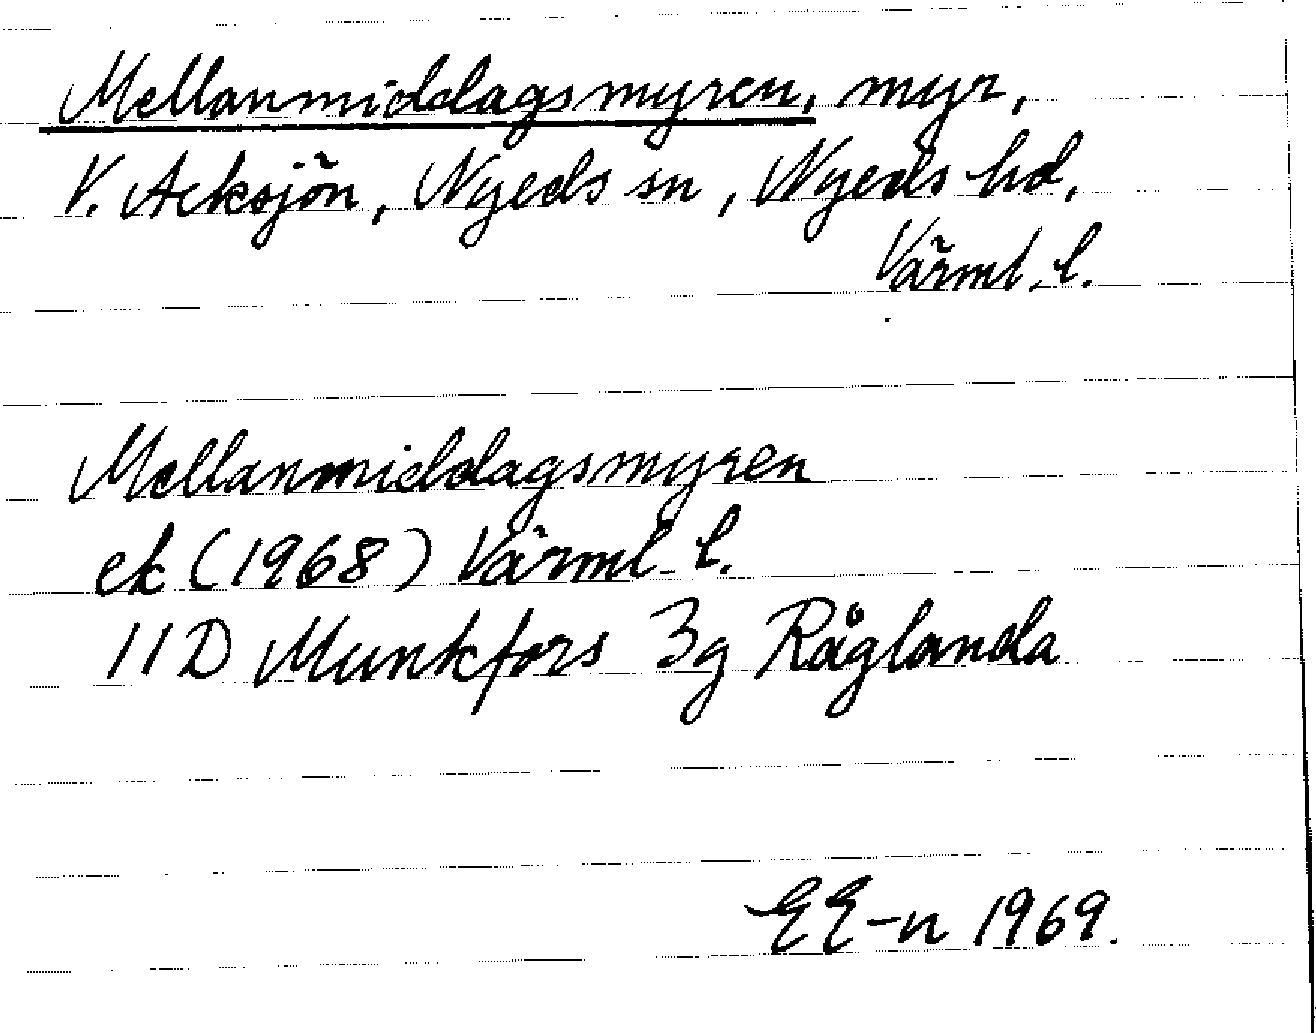 Mellanmiddagsmyren, myr,
V. Acksjön, Nyeds sn, Nyeds hd,
Värml. l.
Mellanmiddagsmyren
ek (1968) Värml. l.
11D Munkfors 3g Råglanda
EE-n 1969.